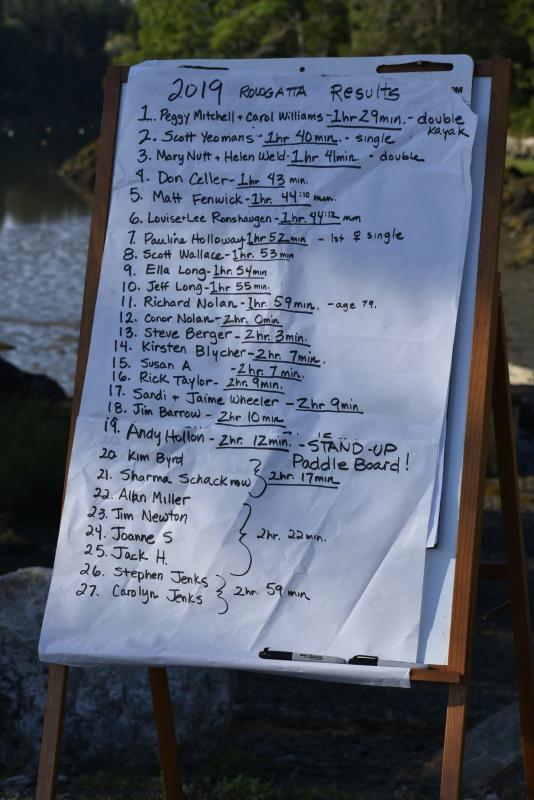 2019 ROWGATTA Results
1. Peggy Mitchell + Carol Williams - 1hr 29min. - double kayak
2. Scott Yeomans - 1hr 40min. - single
3. Mary Nutt + Helen Weld - 1hr 41min. - double
4. Don Celler - 1hr 43 min.
5. Matt Fenwick - 1hr. 44:10 min.
6. Louise + Lee Ronshaugen - 1hr. 44:12 min
7. Pauline Holloway 1hr 52min - 1st ♀ single
8. Scott Wallace - 1hr. 53min
9. Ella Long - 1hr. 54min
10. Jeff Long - 1hr 55 min.
11. Richard Nolan - 1hr 59min. - age 79.
12. Conor Nolan - 2hr. 0min
13. Steve Berger - 2hr. 3min.
14. Kirsten Blycher - 2hr. 7min.
15. Susan A - 2hr. 7min.
16. Rick Taylor - 2hr. 9min.
17. Sardi + Jaime Wheeler - 2hr. 9min
18. Jim Barrow - 2hr 10min
19. Andy Hollon - 2hr. 12min. - STAND-UP
Paddle Board!
20. Kim Byrd
21. Sharma Schackmow 2hr 17min
22. Allan Miller
23. Jim Newton
24. Joanne S 2hr. 22min.
25. Jack H.
26. Stephen Jenks
27. Carolyn Jenks 2hr. 59 min